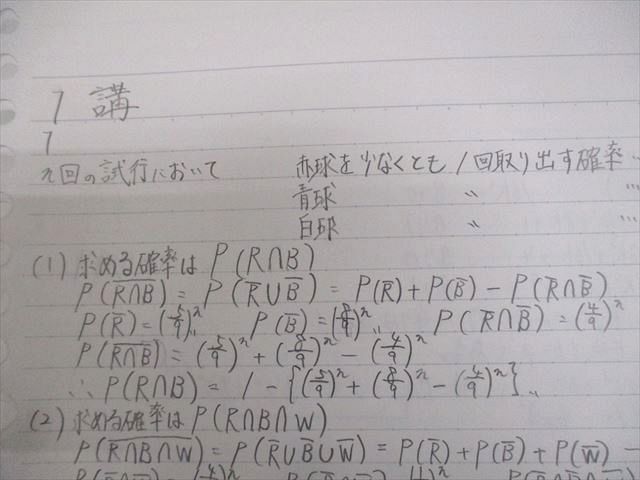 1講
1
n回の試行において 赤球を少なくとも1回取り出す確率…
青球 〃 …
白球 〃 …
(1) 求める確率は P(R∩B)
P(\overline{R∩B}) = P(\overline{R}∪\overline{B}) = P(\overline{R}) + P(\overline{B}) - P(\overline{R}∩\overline{B})
P(\overline{R}) = (5/9)^n, P(\overline{B}) = (8/9)^n, P(\overline{R}∩\overline{B}) = (4/9)^n
P(\overline{R∩B}) = (5/9)^n + (8/9)^n - (4/9)^n
∴ P(R∩B) = 1 - {(5/9)^n + (8/9)^n - (4/9)^n}
(2) 求める確率は P(R∩B∩W)
P(\overline{R∩B∩W}) = P(\overline{R}∪\overline{B}∪\overline{W}) = P(\overline{R}) + P(\overline{B}) + P(\overline{W}) -